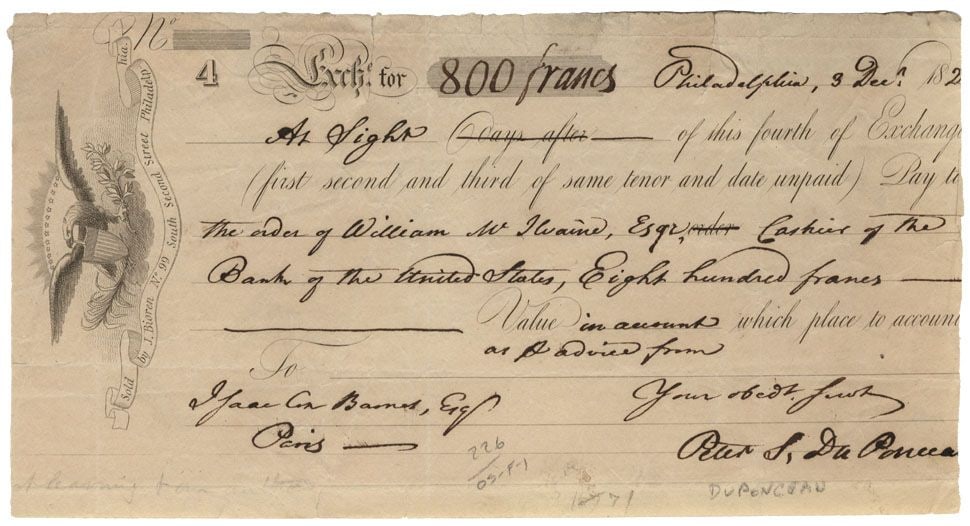 No
4 Exche. for 800 francs Philadelphia, 3 Decr. 182
At Sight Days after of this fourth of Exchange
(first second and third of same tenor and date unpaid) Pay to
the order of William Mc Ilvaine, Esqr, order Cashier of the
Bank of the United States, Eight hundred francs
Value in account which place to account
as P advice from
To
Your obedt. Servt
Isaac Cox Barnet, Esqr
Paris
Peter S, Du Poncea
226
DUPONCEAU
Sold by J. Bioren No. 99 South Second Street Philadelphia